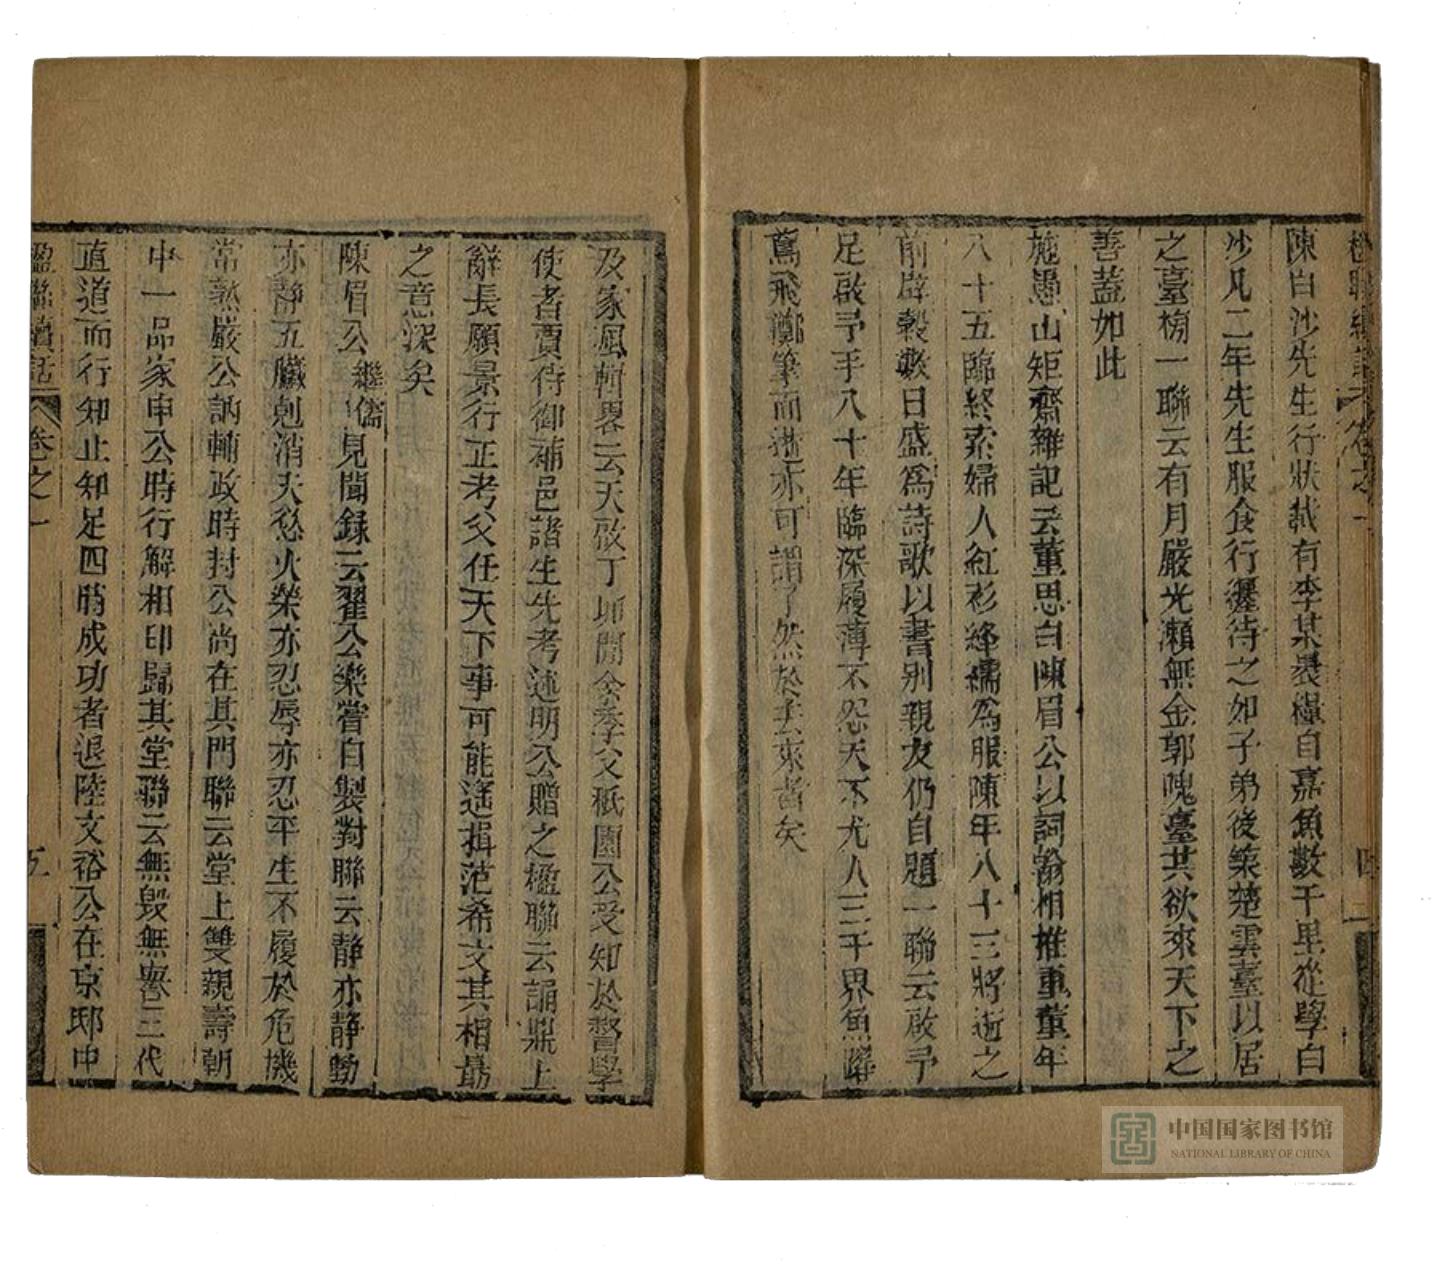 楹聯續話 卷之一 四
陳白沙先生行狀載有李某裹糧自嘉魚數千里從學白
沙凡二年先生服食行纏待之如子弟後築楚雲臺以居
之臺榜一聯云有月嚴光瀨無金郭隗臺共欲來天下之
善蓋如此
施愚山矩齋雜記云董思白陳眉公以詞翰相推重董年
八十五臨終索婦人紅衫絳襦為服陳年八十三將逝之
前辟穀數日盛為詩歌以書别親友仍自題一聯云啟予
足啟予手八十年臨深履薄不怨天不尤人三千界魚躍
鳶飛擲筆而逝亦可謂了然於去來者矣
及家風輯畧云天啟丁卯間余季父祇園公受知於督學
使者賈侍御補邑諸生先考述明公贈之楹聯云誦鼎上
辭長願景行正考父任天下事可能遙揖范希文其相勗
之意深矣
陳眉公繼儒見聞録云翟公樂嘗自製對聯云静亦静動
亦静五臟剋消天慾火榮亦忍辱亦忍平生不履於危機
常熟嚴公訥輔政時封公尚在其門聯云堂上雙親壽朝
中一品家申公時行解相印歸其堂聯云無毀無譽三代
直道而行知止知足四時成功者退陸文裕公在京邸中
楹聯續話 卷之一 五
中国国家图书馆
NATIONAL LIBRARY OF CHINA